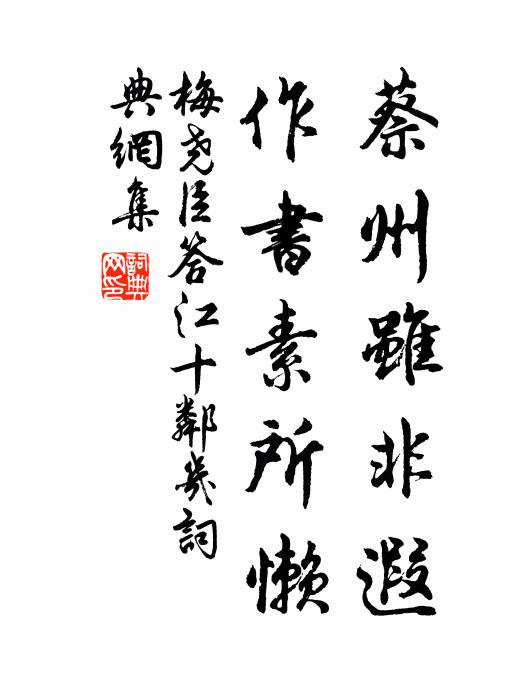 蔡州雖非遐
作書素所懶
梅堯臣答江十鄰幾詞
典網集
詞典
网印